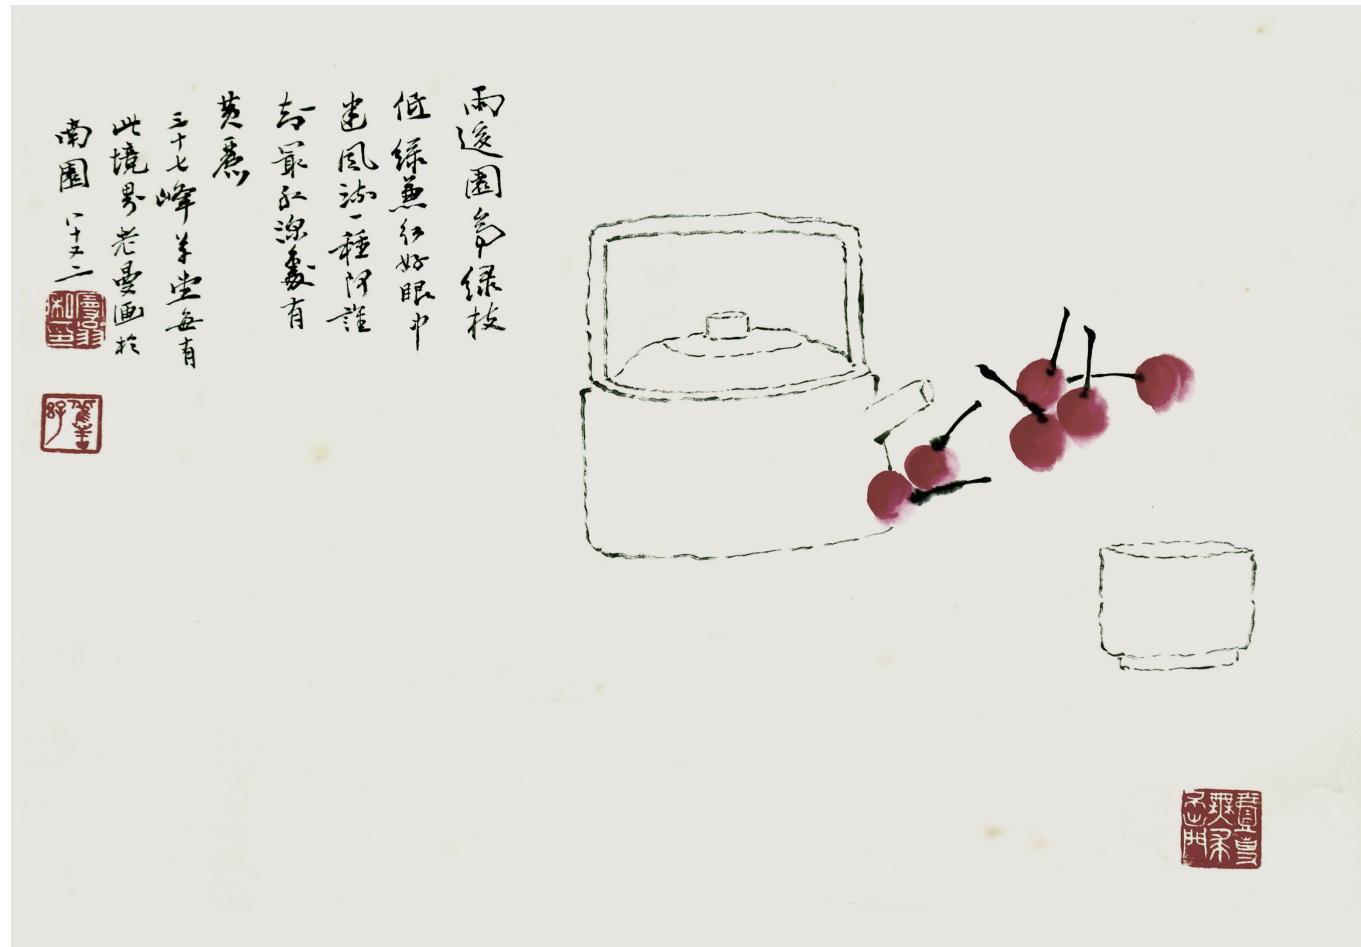 雨過園亭綠枝
低綠兼紅好眼中
迷風流一種阿誰
知最紅深處有
黃鸝
三十七峰草堂每有
此境界老曼画於
南園八十又二